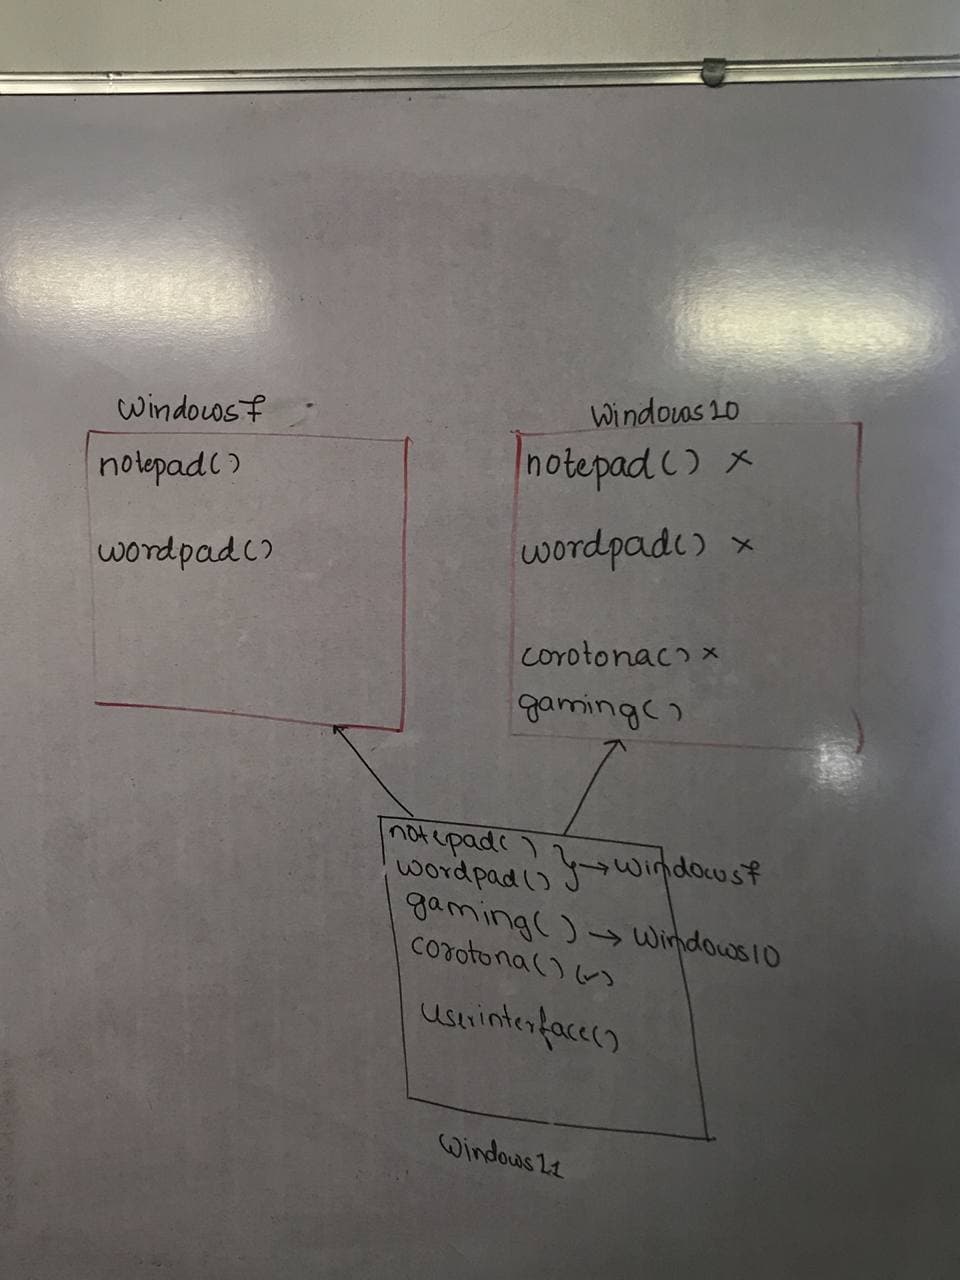 Windows7
notepad()
wordpad()
Windows10
notepad() x
wordpad() x
corotona() x
gaming()
notepad()
wordpad() } → Windows7
gaming() → Windows10
corotona() (✓)
userinterface()
Windows11